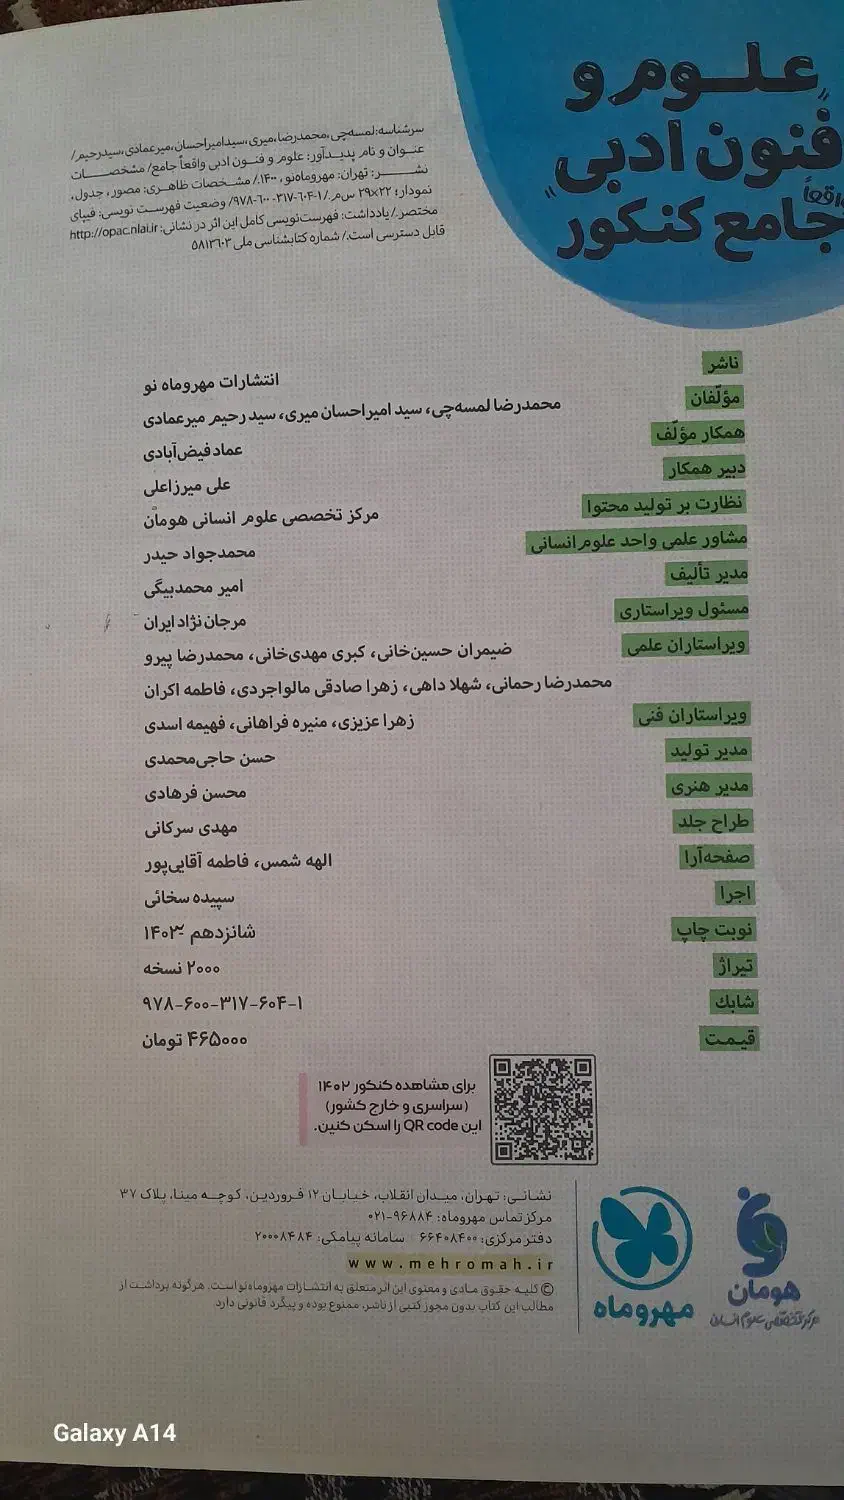 علوم و
فنون ادبی
واقعاً
جامع کنکور
سرشناسه:لمسه‌چی،محمدرضا،میری،سیدامیراحسان،میرعمادی،سیدرحیم/
عنوان و نام پدیدآور: علوم و فنون ادبی واقعاً جامع/ مشخصات
نشر: تهران: مهروماه‌نو، ۱۴۰۰./ مشخصات ظاهری: مصور، جدول،
نمودار؛ ۲۲×۲۹ س‌م./ ۱-۶۰۴-۳۱۷-۶۰۰-۹۷۸/ وضعیت فهرست نویسی: فیپای
مختصر./ یادداشت: فهرست‌نویسی کامل این اثر در نشانی: http://opac.nlai.ir
قابل دسترسی است./ شماره کتابشناسی ملی ۵۸۱۳۶۰۳
ناشر انتشارات مهروماه نو
مؤلّفان محمدرضا لمسه‌چی، سید امیراحسان میری، سید رحیم میرعمادی
همکار مؤلّف عماد فیض‌آبادی
دبیر همکار علی میرزاعلی
نظارت بر تولید محتوا مرکز تخصصی علوم انسانی هومان
مشاور علمی واحد علوم‌انسانی محمدجواد حیدر
مدیر تألیف امیر محمدبیگی
مسئول ویراستاری مرجان نژاد ایران
ویراستاران علمی ضیمران حسین‌خانی، کبری مهدی‌خانی، محمدرضا پیرو
محمدرضا رحمانی، شهلا داهی، زهرا صادقی مالواجردی، فاطمه اکران
ویراستاران فنی زهرا عزیزی، منیره فراهانی، فهیمه اسدی
مدیر تولید حسن حاجی‌محمدی
مدیر هنری محسن فرهادی
طراح جلد مهدی سرکانی
صفحه‌آرا الهه شمس، فاطمه آقایی‌پور
اجرا سپیده سخائی
نوبت چاپ شانزدهم
تیراژ ۲۰۰۰ نسخه
شابک ۹۷۸-۶۰۰-۳۱۷-۶۰۴-۱
قیمت ۴۶۵۰۰۰ تومان
برای مشاهده کنکور ۱۴۰۲
(سراسری و خارج کشور)
این QR code را اسکن کنین.
نشانی: تهران، میدان انقلاب، خیابان ۱۲ فروردین، کوچه مینا، پلاک ۳۷
مرکز تماس مهروماه: ۹۶۸۸۴-۰۲۱
دفتر مرکزی: ۶۶۴۰۸۴۰۰ سامانه پیامکی: ۲۰۰۰۸۴۸۴
www.mehromah.ir
© کلیه حقوق مادی و معنوی این اثر متعلق به انتشارات مهروماه‌نو است. هرگونه برداشت از
مطالب این کتاب بدون مجوز کتبی از ناشر، ممنوع بوده و پیگرد قانونی دارد.
مهروماه
هومان
مرکز تخصصی علوم انسانی
Galaxy A14